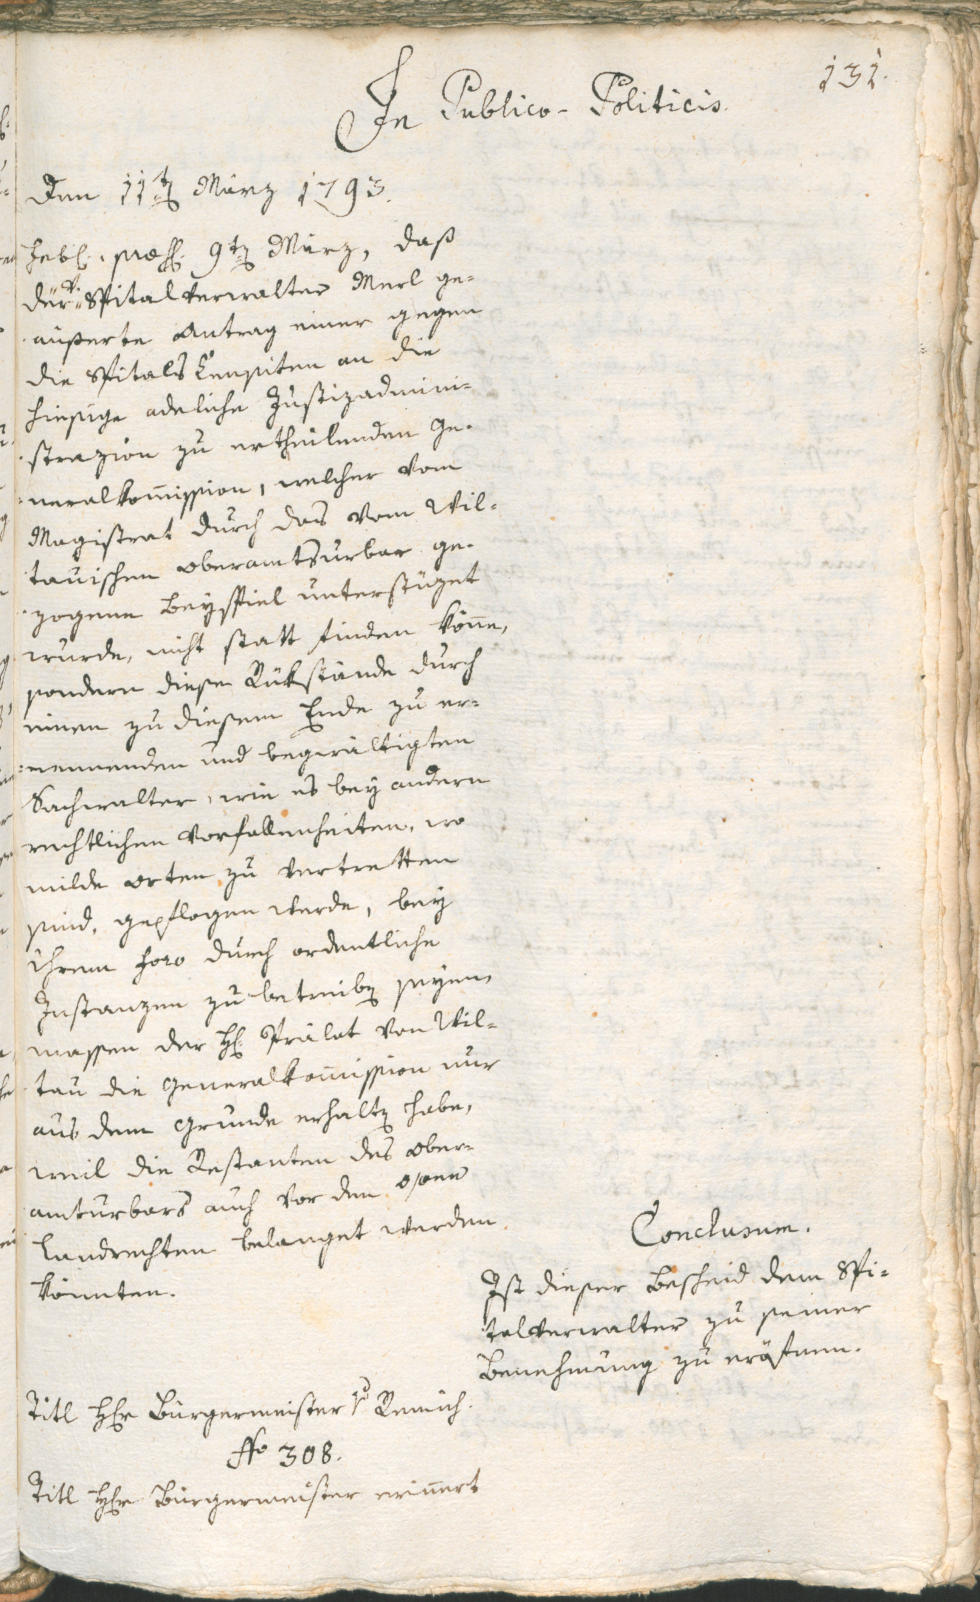 131.
In Publico-Politicis.
Den 11tn März 1793.
9tn März, daß
der Spitalverwalter Merl ge-
äußerte Antrag einer gegen
die Spitals Censiten an die
hiesige adeliche Justizadmini-
strazion zu ertheilenden Ge-
neralkom̄ission, welcher vom
Magistrat durch das vom Wil-
tauischen Oberamtsurbar ge-
zogene Beyspiel unterstüzet
wurde, nicht statt finden kön̄e,
sondern diese Rükstände durch
einen zu diesem Ende zu er-
nennenden und begwältigten
Sachwalter, wie es bey andern
rechtlichen Vorfallenheiten, wo
milde Orten zu vertretten
sind, gepflogen werde, bey
ihrem foro durch ordentliche
Instanzen zu betreibn seyen,
massen der H: Prälat von Wil-
tau die Generalkom̄ission nur
aus dem Grunde erhaltn habe,
weil die Restanten des Ober-
amturbars auch vor den
Landrechten belanget werden
könnten.
Conclusum.
Ist dieser Bescheid dem Spi-
talverwalter zu seiner
Benehmung zu eröfnen.
Titl Hr Bürgermeister Remich.
Ffo 308.
Titl Hr Bürgermeister erin̄ert